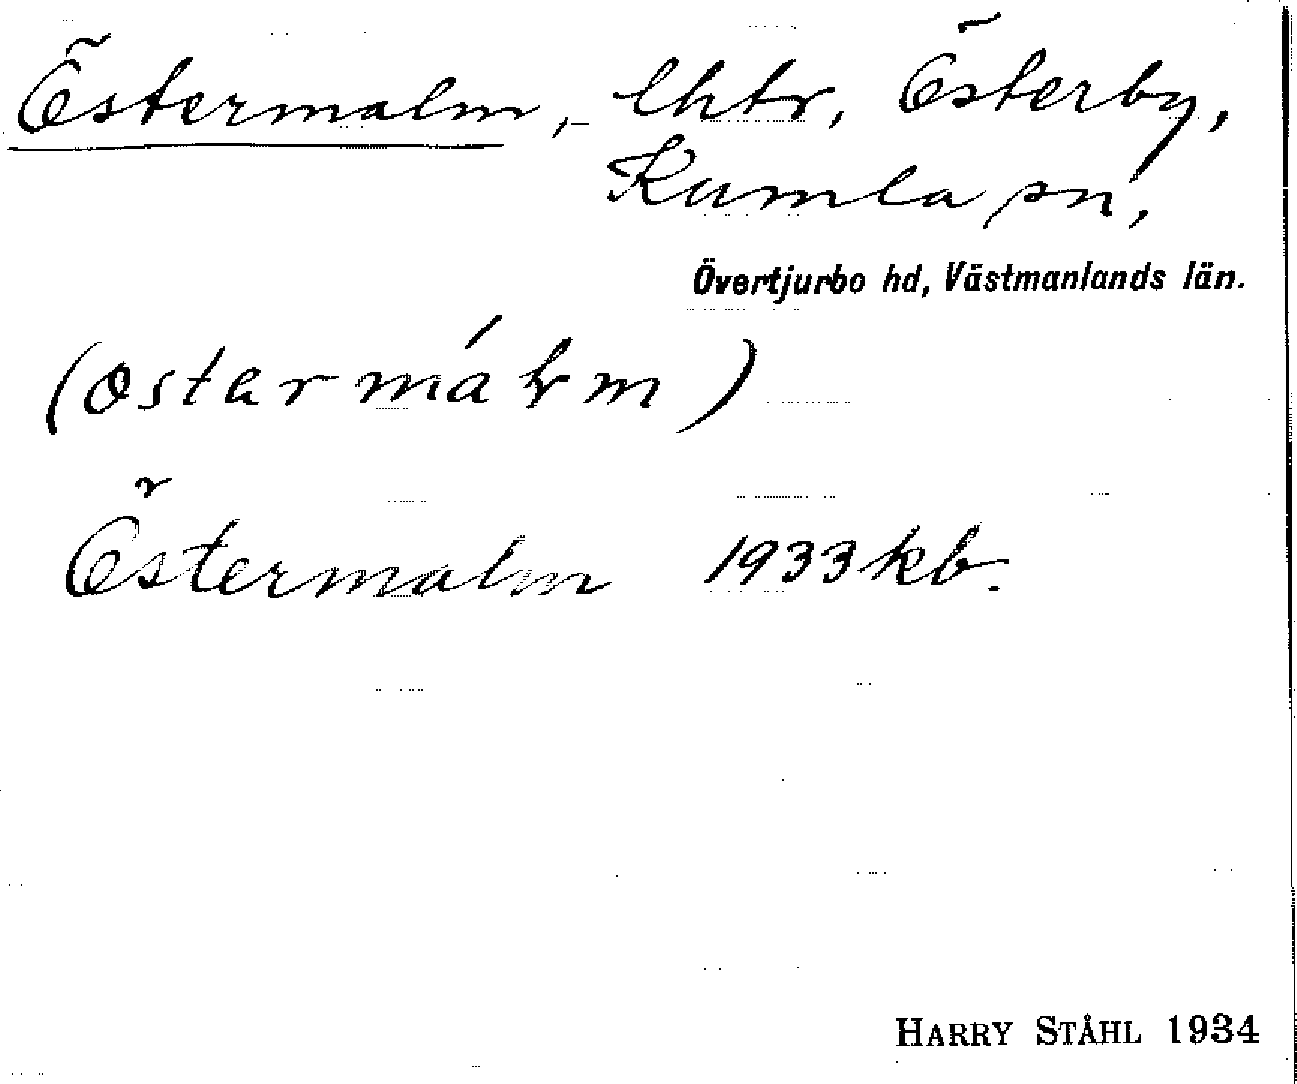 Östermalm, lhtr, Österby,
Kumla sn,
Övertjurbo hd, Västmanlands län.
Östermalm 1933 kb.
HARRY STÅHL 1934